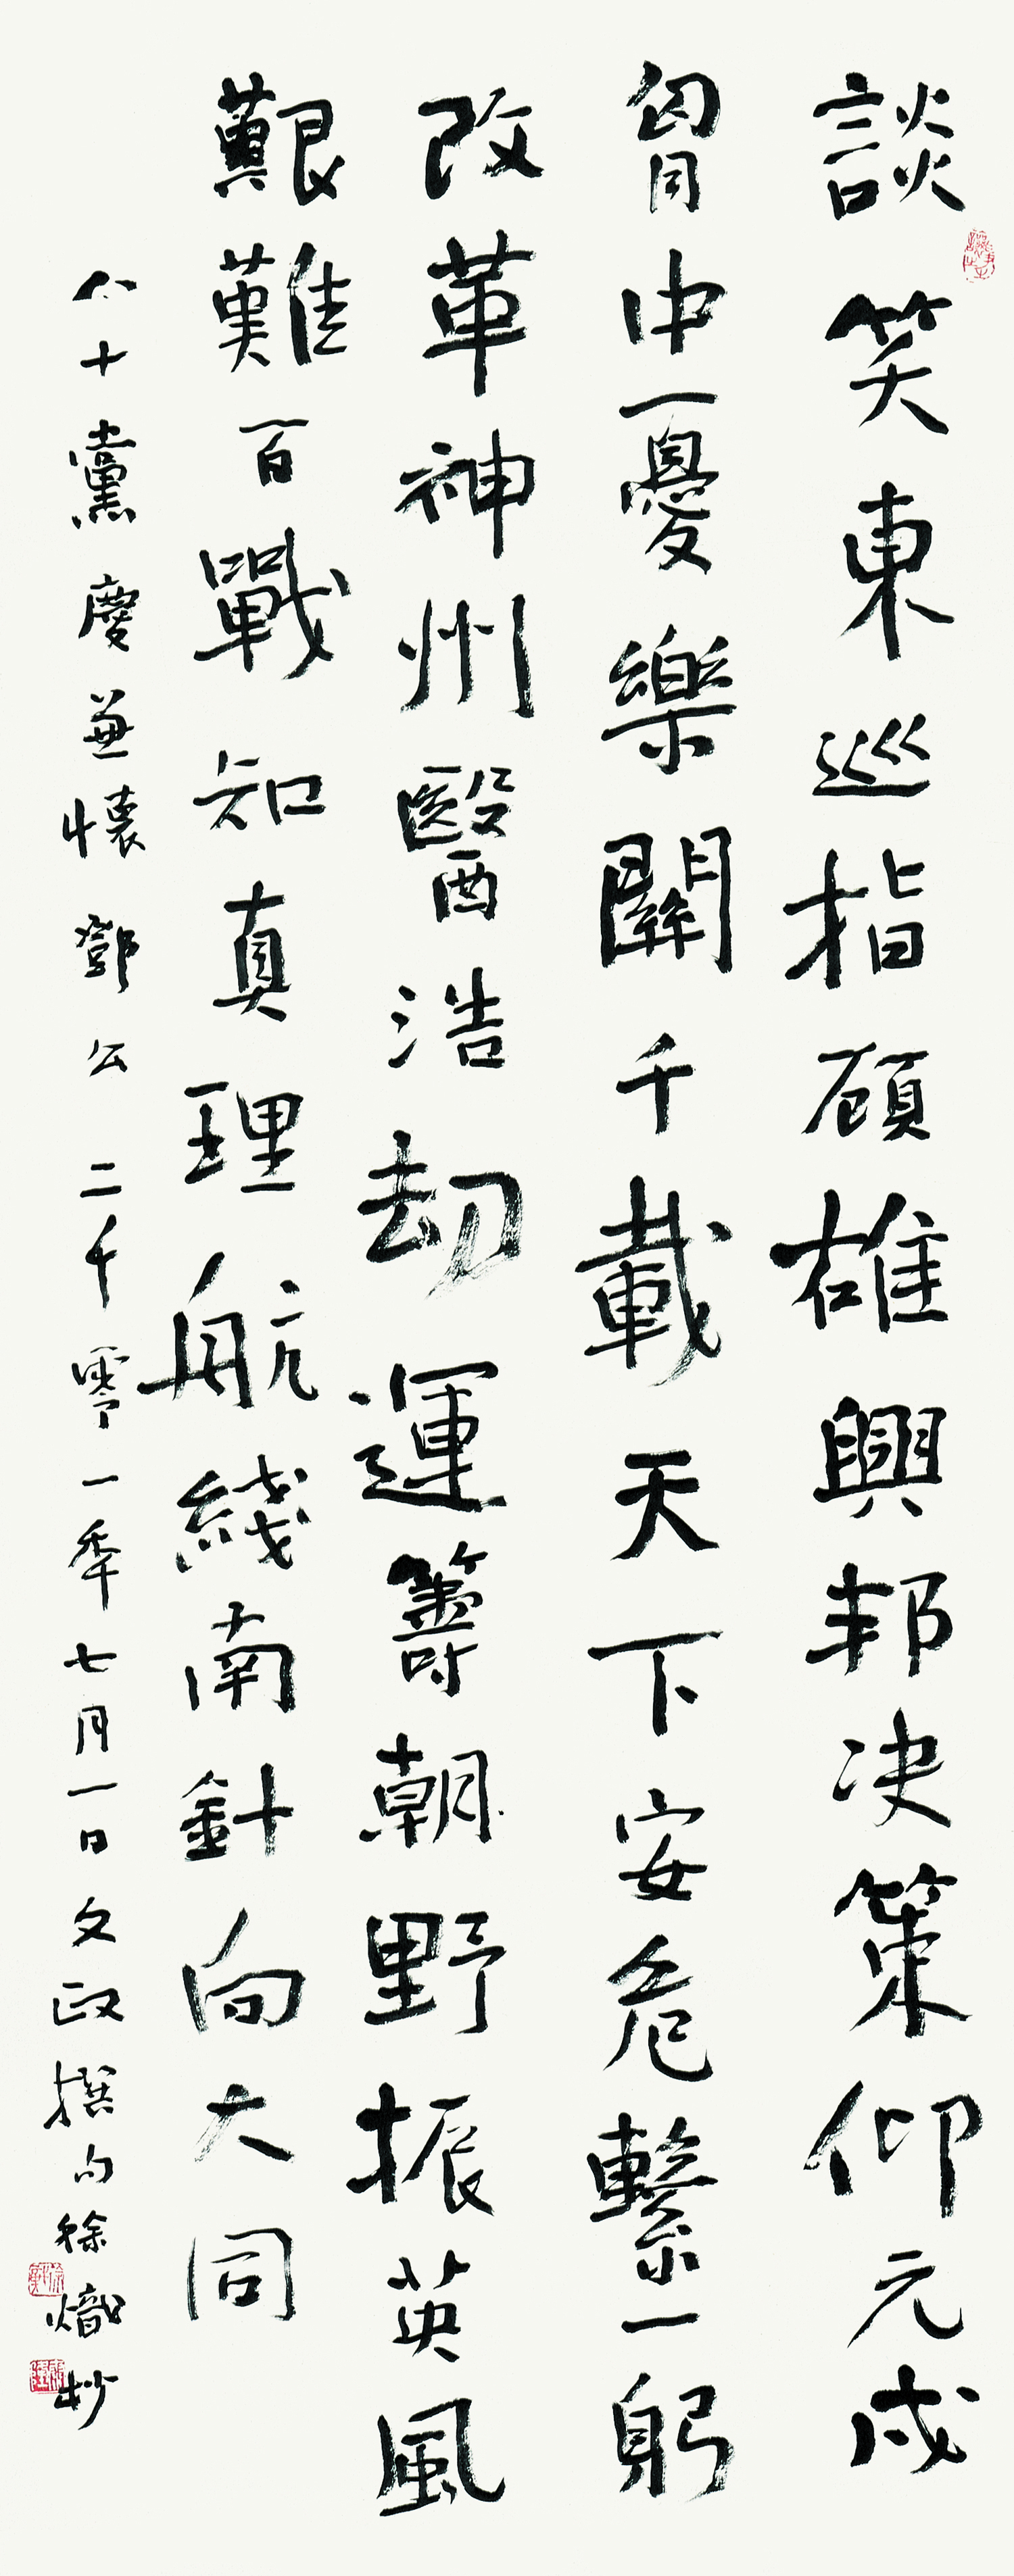 談笑東巡指顧雄興邦决策仰元戎
胷中憂樂關千載天下安危繫一躬
改革神州醫浩劫運籌朝野振英風
艱難百戰知真理航綫南針向大同
八十黨慶兼懷鄧公二千零一秊七月一日文政撰句徐熾抄